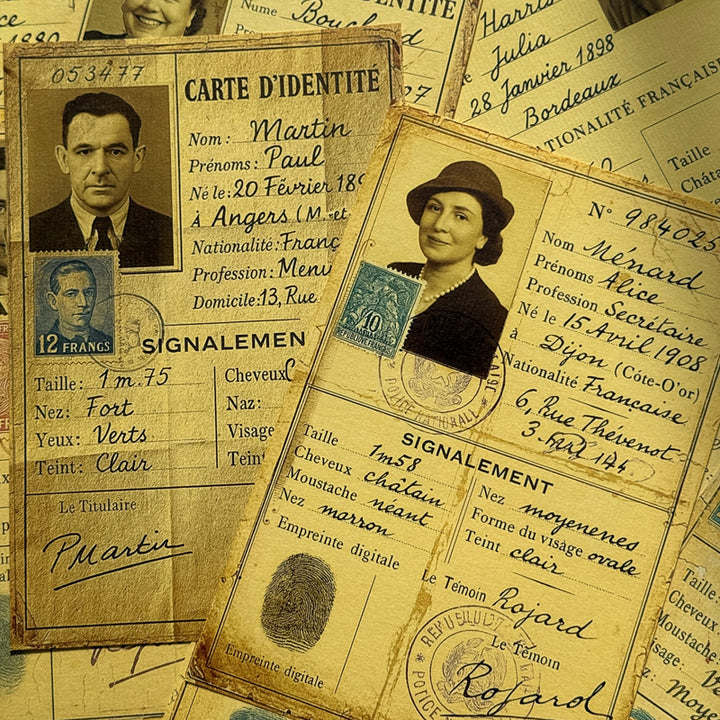 Nom Bouchard
D'IDENTITÉ
Harris
Julia
28 Janvier 1898
Bordeaux
NATIONALITÉ FRANÇAISE
Taille
Châta
053477
CARTE D'IDENTITÉ
Nom: Martin
Prénoms: Paul
Né le: 20 Février 189
à Angers (M.-et
Nationalité: Franç
Profession: Menu
Domicile: 13, Rue
12 FRANCS
SIGNALEMEN
Taille: 1m.75
Nez: Fort
Yeux: Verts
Teint: Clair
Cheveux
Naz:
Visage
Teint
Le Titulaire
PMartin
N° 984025
Nom Ménard
Prénoms Alice
Profession Secrétaire
Né le 15 Avril 1908
à Dijon (Côte-O'or)
Nationalité Française
6, Rue Thévenot
10
SIGNALEMENT
Taille 1m58
Cheveux châtain
Moustache neant
Nez marron
Empreinte digitale
Nez moyenenes
Forme du visage ovale
Teint clair
Empreinte digitale
Le Témoin Rojard
Le Témoin
Rojard
POLICE
Taille:
Cheveux
Moustache
Visage:
Moye